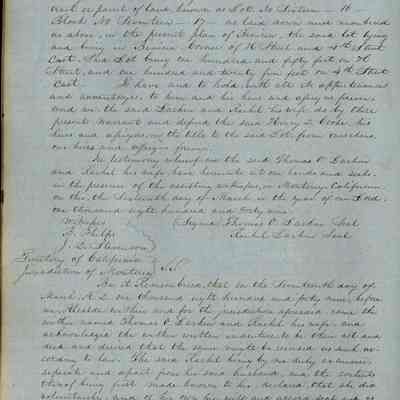 or parcel of land known as Lot No Sixteen - 16 -
Block No Seventeen - 17 - as laid down and numbered
as above, in the present plan of Benicia, the said lot lying
and being in Benicia Corner of H Street and 4th Street
East. Said Lot being one hundred and fifty feet on H
Street, and one hundred and twenty five feet on 4th Street
East. To have and to hold with all the appurtenances
and advantages, to him and his heirs and assigns forever.
And we the said Larkin and Rachel his wife do by these
presents warrant and defend the said Henry Cooke his
heirs and assigns, in the title to the said Lot from ourselves
our heirs and assigns forever.
In testimony whereof we the said Thomas O Larkin
and Rachel his wife, have hereunto set our hands and seals
in the presence of the assisting witnesses, in Monterey California
on this the Sixteenth day of March in the year of our Lord
one thousand eight hundred and forty nine.
Signed Thomas O Larkin Seal
Phelps Rachel Larkin Seal
J. D. Stevenson
Territory of California
Jurisdiction of Monterey SS.
Be it Remembered, that on the Seventeenth day of
March A.D. one thousand eight hundred and forty nine, before
me, Alcalde within and for the jurisdiction aforesaid, came the
within named Thomas O Larkin and Rachel his wife, and
acknowledged the within written indenture to be their act and
deed and desired that the same might be recorded as such ac-
cording to law. The said Rachel being by me duly examined
separate and apart from her said husband, and the contents
thereof being first made known to her, declared that she did
voluntarily, and of her own free will and accord seal and as